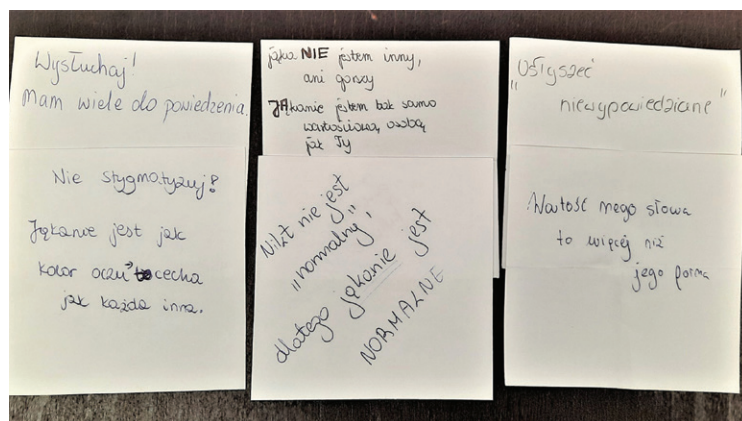 Wysłuchaj!
Mam wiele do powiedzenia.
Nie stygmatyzuj!
Jąkanie jest jak
kolor oczu to cecha
jak każda inna.
jąka NIE jestem inny,
ani gorszy
JĄkanie jestem tak samo
wartościową osobą
jak Ty
Nikt nie jest
"normalny",
dlatego jąkanie jest
NORMALNE
"Usłyszeć
niewypowiedziane"
Wartość mego słowa
to więcej niż
jego forma